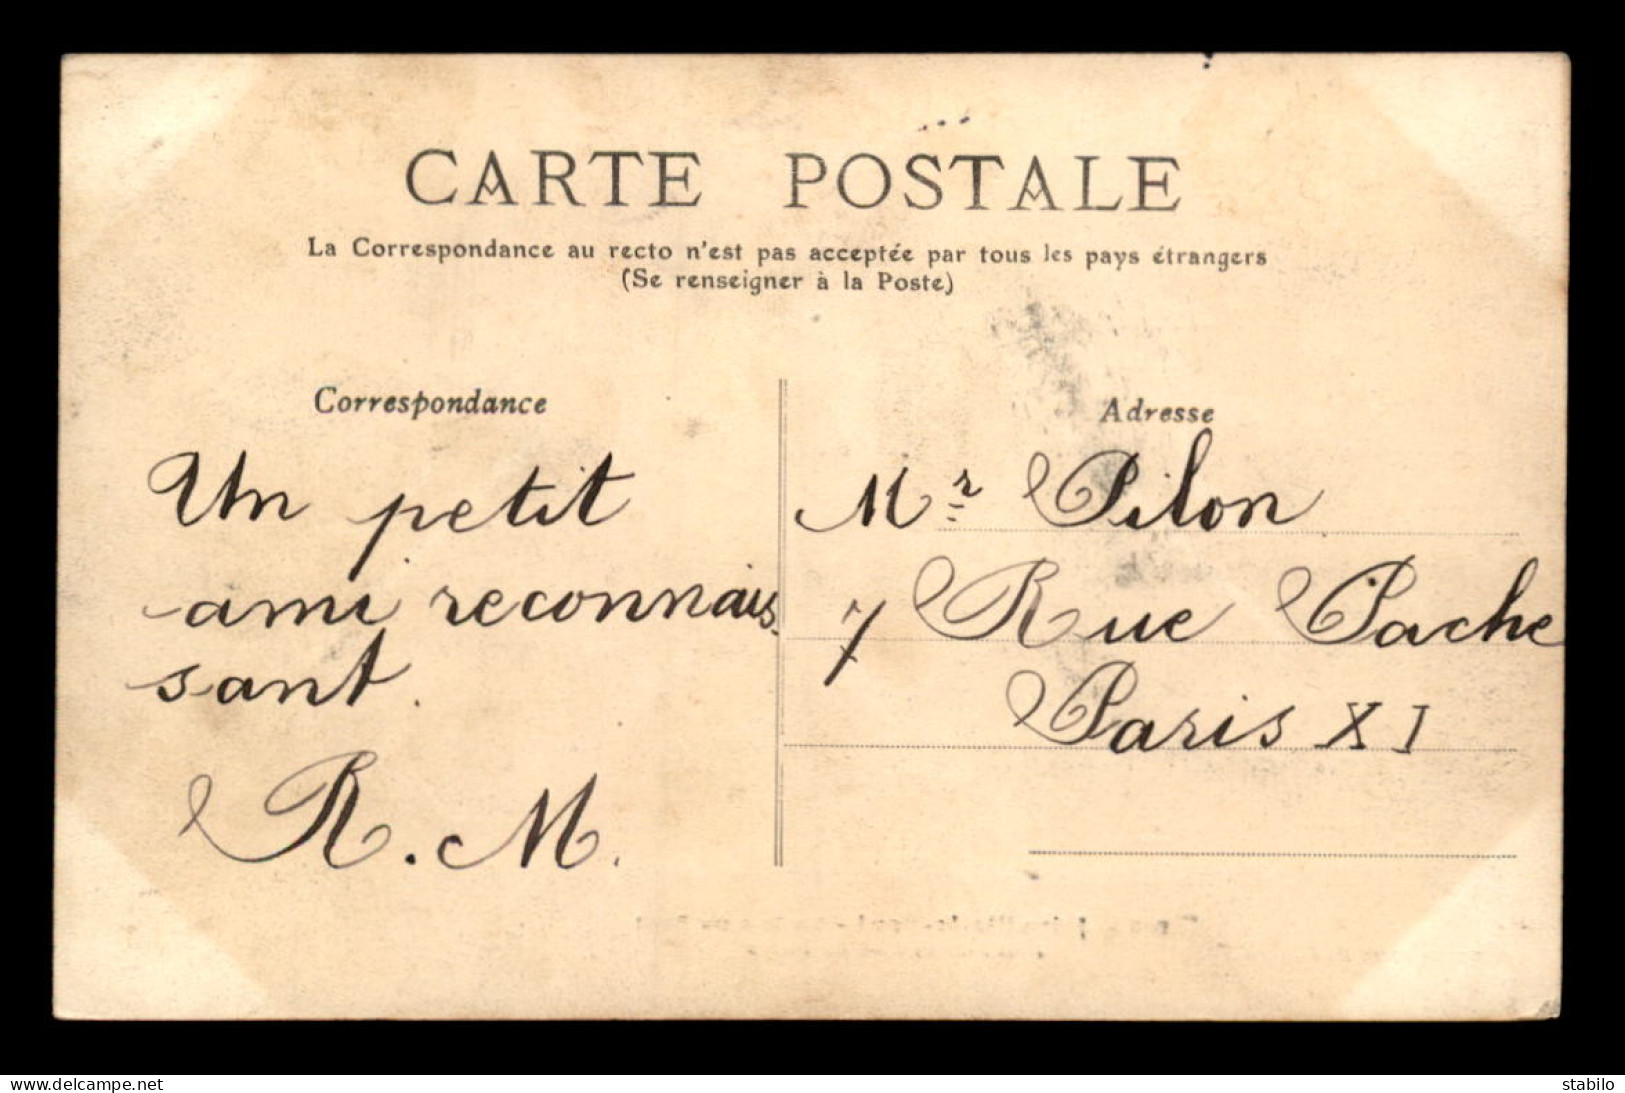 CARTE POSTALE
La Correspondance au recto n'est pas acceptée par tous les pays étrangers
(Se renseigner à la Poste)
Correspondance
Un petit
ami reconnais
sant.
R. M.
Adresse
Mr Pilon
7 Rue Pache
Paris XI
www.delcampe.net
stabilo